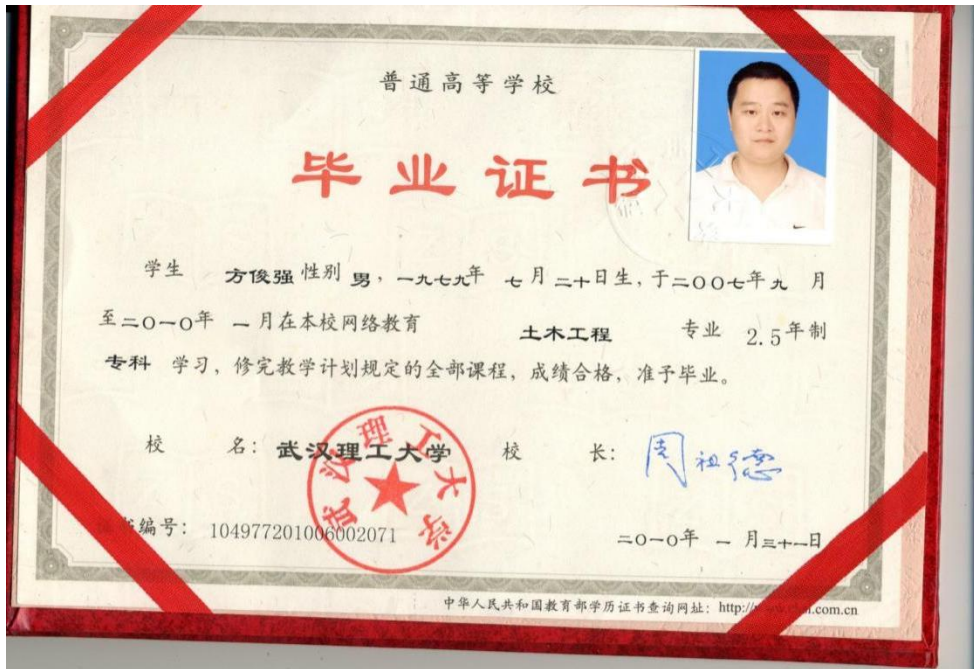 普通高等学校
毕业证书
学生 方俊强 性别 男，一九七九年 七月二十日生，于二〇〇七年九 月
至二〇一〇年 一月在本校网络教育 土木工程 专业 2.5年制
专科 学习，修完教学计划规定的全部课程，成绩合格，准予毕业。
校 名：武汉理工大学 校 长：周祖德
武汉理工大学
编号：104977201006002071
二〇一〇年 一 月三十一日
中华人民共和国教育部学历证书查询网址：http:// .com.cn